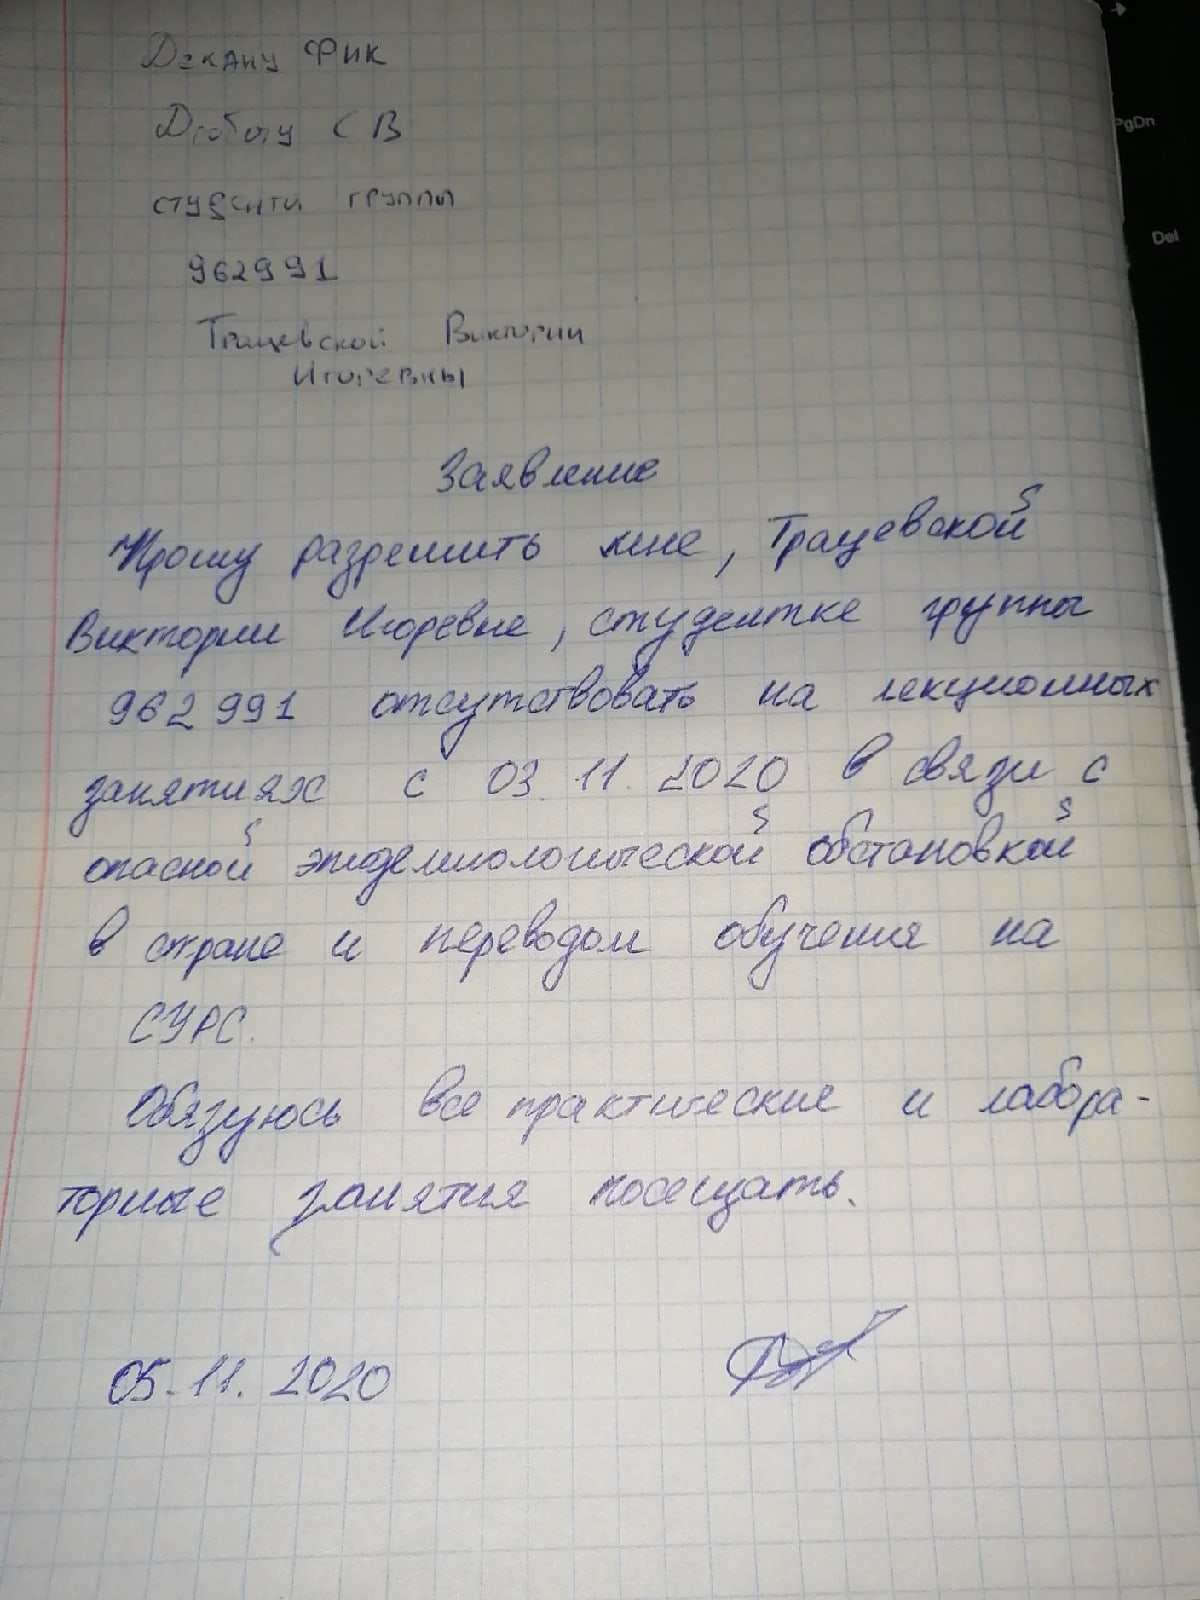 Декану ФИК
Дроботу С В
студенти группы
962991
Трацевской Виктории
Игоревны
Заявление
Прошу разрешить мне, Трацевской
Виктории Игоревне, студентке группы
962991 отсутствовать на лекционных
занятиях с 03.11.2020 в связи с
опасной эпидемиологической обстановкой
в стране и переводом обучения на
СУРС.
Обязуюсь все практические и лабора-
торные занятия посещать.
05.11.2020
PgDn
Del